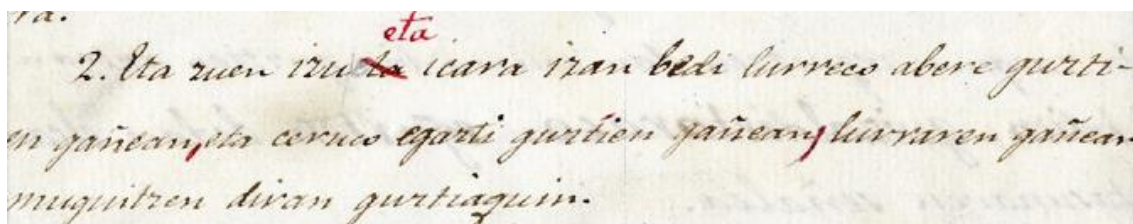 ra.
eta
2. Eta zuen izu ta icara izan bedi lurreco abere guzti-
en gañean, eta ceruco egazti guztien gañean, lurraren gañean
muguitzen diran guztiaquin.